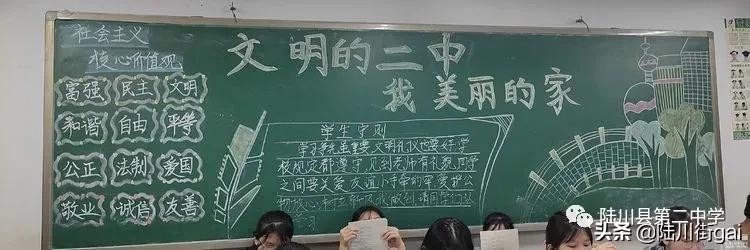 社会主义
核心价值观
富强 民主 文明
和谐 自由 平等
公正 法制 爱国
敬业 诚信 友善
文明的二中
我美丽的家
学生守则
学习养德重要文明礼仪也要好学
校规定都遵守见到老师有礼貌同学
之间要关爱友谊
陆川县第二中学
头条 @陆川街gai